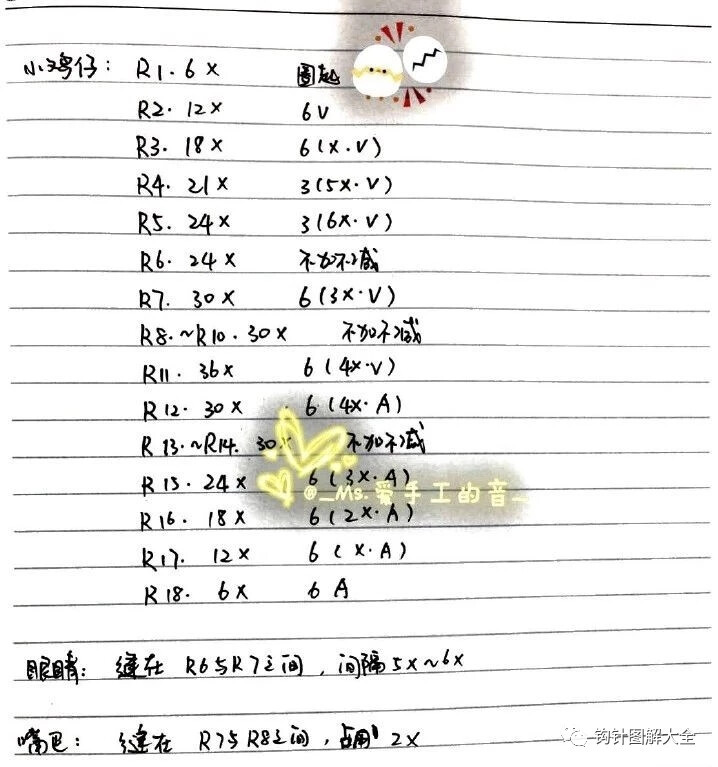 小鸡仔: R1. 6X 圈起
R2. 12X 6V
R3. 18X 6(X·V)
R4. 21X 3(5X·V)
R5. 24X 3(6X·V)
R6. 24X 不加不减
R7. 30X 6(3X·V)
R8.~R10. 30X 不加不减
R11. 36X 6(4X·V)
R12. 30X 6(4X·A)
R13.~R14. 30X 不加不减
R15. 24X 6(3X·A)
@_Ms.爱手工的音_
R16. 18X 6(2X·A)
R17. 12X 6(X·A)
R18. 6X 6A
眼睛: 缝在 R6与R7之间, 间隔5X~6X
嘴巴: 缝在 R7与R8之间, 占用 2X
钩针图解大全